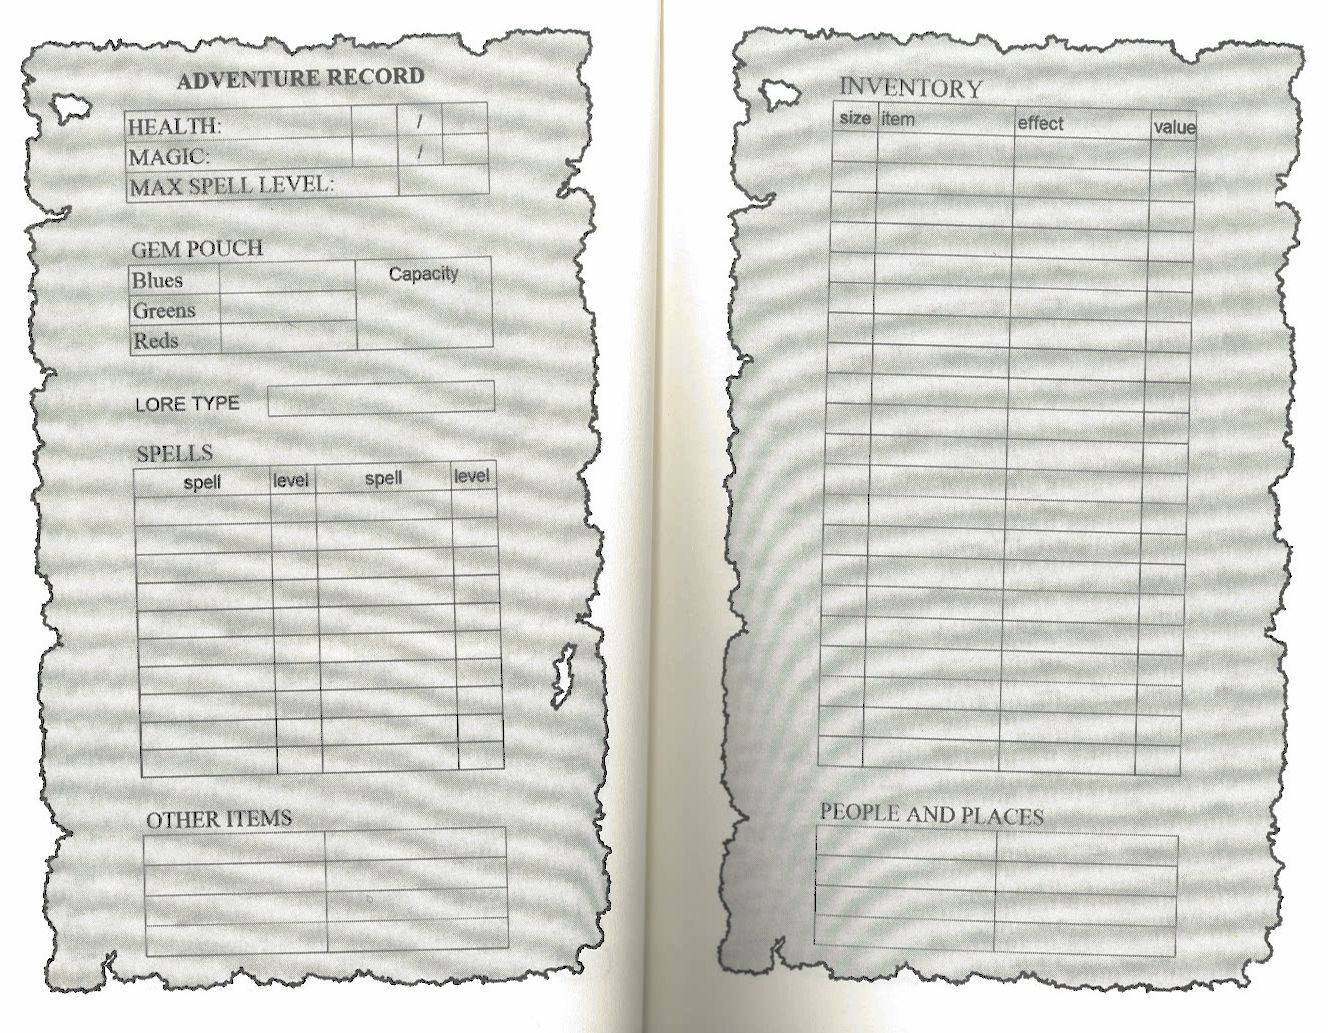 ADVENTURE RECORD
HEALTH: /
MAGIC: /
MAX SPELL LEVEL:
GEM POUCH
Blues Capacity
Greens
Reds
LORE TYPE
SPELLS
spell level spell level
OTHER ITEMS
INVENTORY
size item effect value
PEOPLE AND PLACES